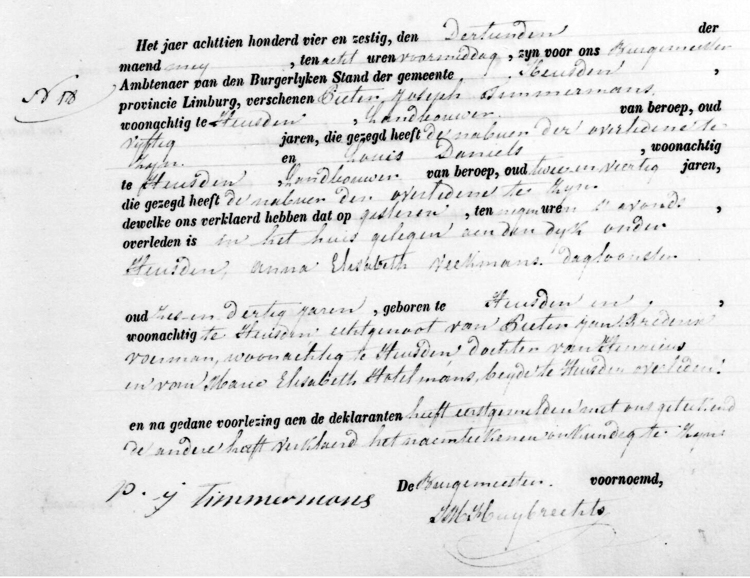 Het jaer achttien honderd vier en zestig, den Dertienden der
maend mey, ten acht uren voormiddag, zyn voor ons Burgemeester
Ambtenaer van den Burgerlyken Stand der gemeente Heusden,
N 18
provincie Limburg, verschenen Pieter Joseph Timmermans,
woonachtig te Heusden, Landbouwer van beroep, oud
vyftig jaren, die gezegd heeft de nabuer der overledene te
zyn en Louis Daniels, woonachtig
te Heusden, Landbouwer van beroep, oud twee en veertig jaren,
die gezegd heeft de nabuer den overledene te zyn
dewelke ons verklaerd hebben dat op gisteren, ten negen uren s'avonds,
overleden is in het huis gelegen aen den dyk onder
Heusden, Anna Elisabeth Veekmans dagloonster
oud zes en dertig jaren, geboren te Heusden en,
woonachtig te Heusden echtgenoot van Pieter Jan
voerman, woonachtig te Heusden dochter van Henricus
en van Marie Elisabeth Hotelmans, beyde te Heusden overleden.
en na gedane voorlezing aen de deklaranten heeft eerstgemelden met ons geteekend
de andere heeft verklaerd het naemteekenen onkundig te zyn
De Burgemeester voornoemd,
P. j Timmermans
Huybrechts